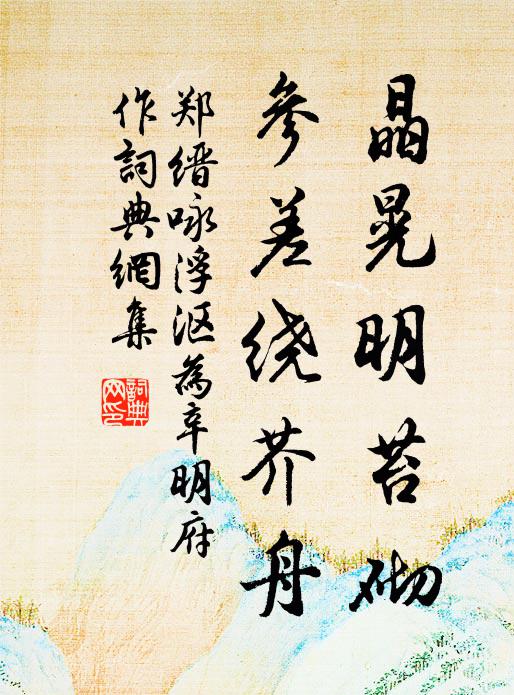 晶晃明苔砌
参差绕芥舟
郑缙咏浮沤为辛明府
作詞典網集
詞典
网印